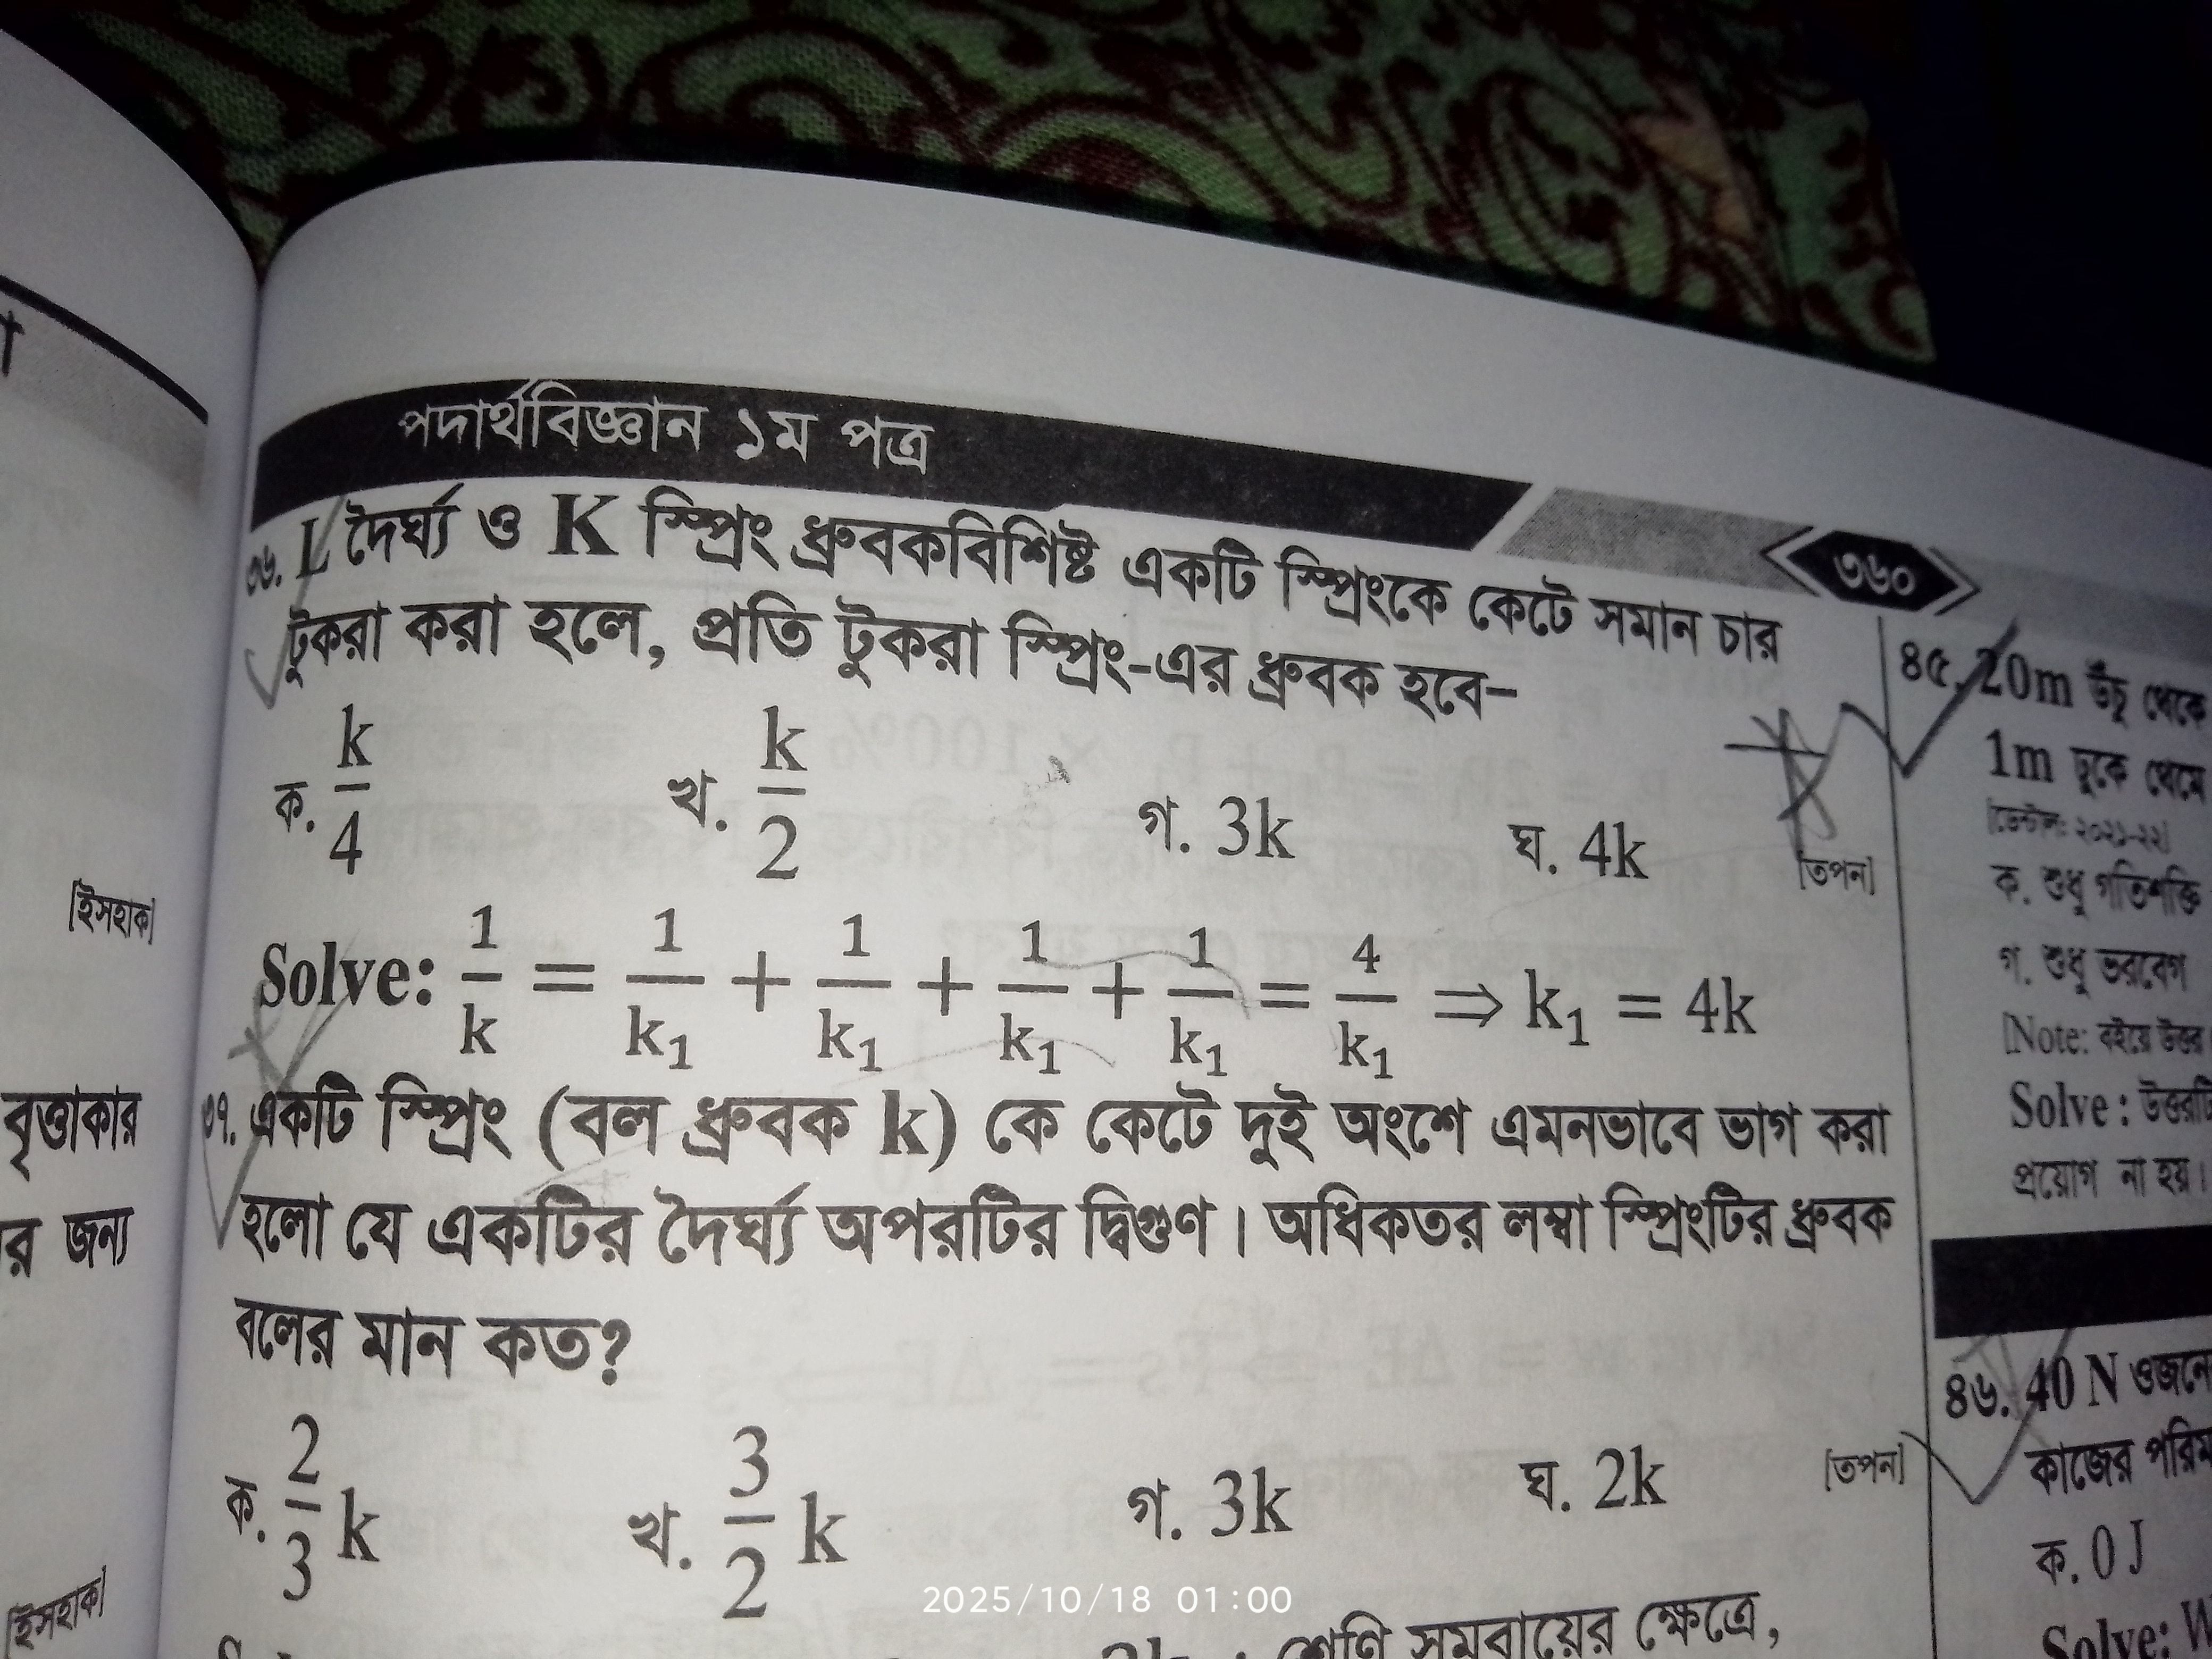 পদার্থবিজ্ঞান ১ম পত্র
৩৬০
৩৬. L দৈর্ঘ্য ও K স্প্রিং ধ্রুবকবিশিষ্ট একটি স্প্রিংকে কেটে সমান চার
টুকরা করা হলে, প্রতি টুকরা স্প্রিং-এর ধ্রুবক হবে-
ক. k/4 খ. k/2 গ. 3k ঘ. 4k
[তপন]
Solve: 1/k = 1/k₁ + 1/k₁ + 1/k₁ + 1/k₁ = 4/k₁ ⇒ k₁ = 4k
৩৭. একটি স্প্রিং (বল ধ্রুবক k) কে কেটে দুই অংশে এমনভাবে ভাগ করা
হলো যে একটির দৈর্ঘ্য অপরটির দ্বিগুণ। অধিকতর লম্বা স্প্রিংটির ধ্রুবক
বলের মান কত?
ক. 2/3 k খ. 3/2 k গ. 3k ঘ. 2k
[তপন]
শ্রেণি সমবায়ের ক্ষেত্রে,
[ইসহাক]
বৃত্তাকার
র জন্য
[ইসহাক]
৪৫. 20m উঁচু থেকে
1m ঢুকে থেমে
[ডেন্টাল: ২০২১-২২]
ক. শুধু গতিশক্তি
গ. শুধু ভরবেগ
[Note: বইয়ে উত্তর
Solve : উত্তরটি
প্রয়োগ না হয়।
৪৬. 40 N ওজনে
কাজের পরিম
ক. 0 J
Solve: W
2025/10/18 01:00